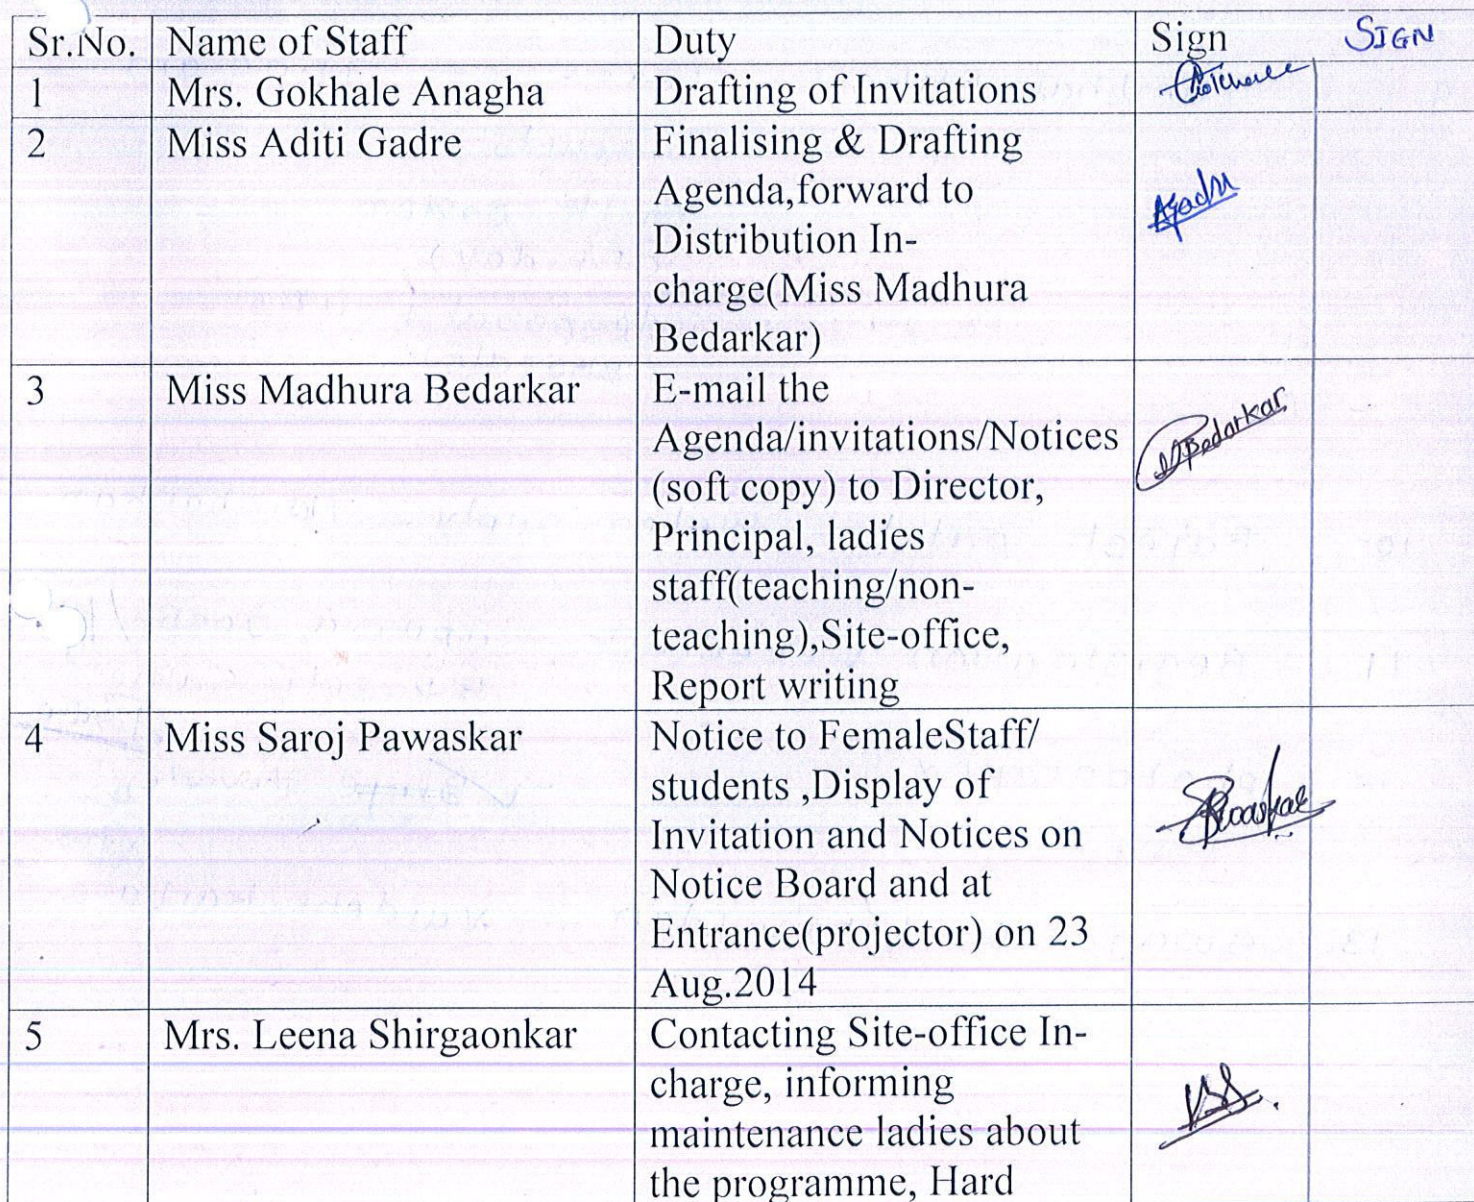 Sr.No. Name of Staff Duty Sign SIGN
1 Mrs. Gokhale Anagha Drafting of Invitations
2 Miss Aditi Gadre Finalising & Drafting
Agenda,forward to
Distribution In-
charge(Miss Madhura
Bedarkar)
3 Miss Madhura Bedarkar E-mail the
Agenda/invitations/Notices
(soft copy) to Director,
Principal, ladies
staff(teaching/non-
teaching),Site-office,
Report writing
MBedarkar
4 Miss Saroj Pawaskar Notice to FemaleStaff/
students ,Display of
Invitation and Notices on
Notice Board and at
Entrance(projector) on 23
Aug.2014
5 Mrs. Leena Shirgaonkar Contacting Site-office In-
charge, informing
maintenance ladies about
the programme, Hard